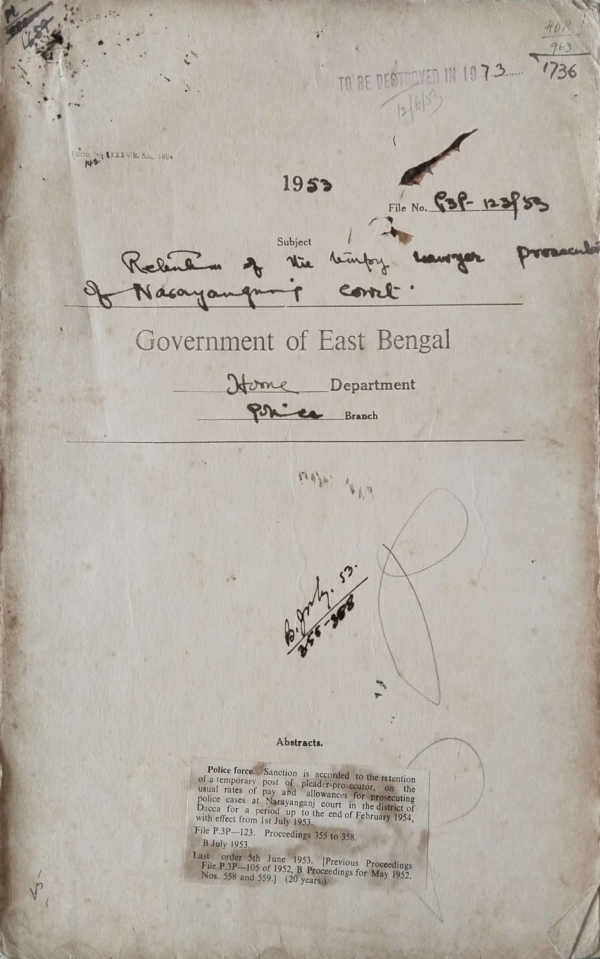 HDR
963
1736
TO BE DESTROYED IN 1973......
12/6/53
1953
File No. P3P-123/53
Subject
Retention of the tempy lawyer prosecutor
of Narayangunj court.
Government of East Bengal
Home Department
Police Branch
B. July. 53.
355-358
Abstracts.
Police force. Sanction is accorded to the retention
of a temporary post of pleader-prosecutor, on the
usual rates of pay and allowances for prosecuting
police cases at Narayanganj court in the district of
Dacca for a period up to the end of February 1954,
with effect from 1st July 1953.
File P.3P—123. Proceedings 355 to 358.
B July 1953.
Last order 5th June 1953. [Previous Proceedings
File P.3P—105 of 1952, B Proceedings for May 1952,
Nos. 558 and 559.] (20 years.)